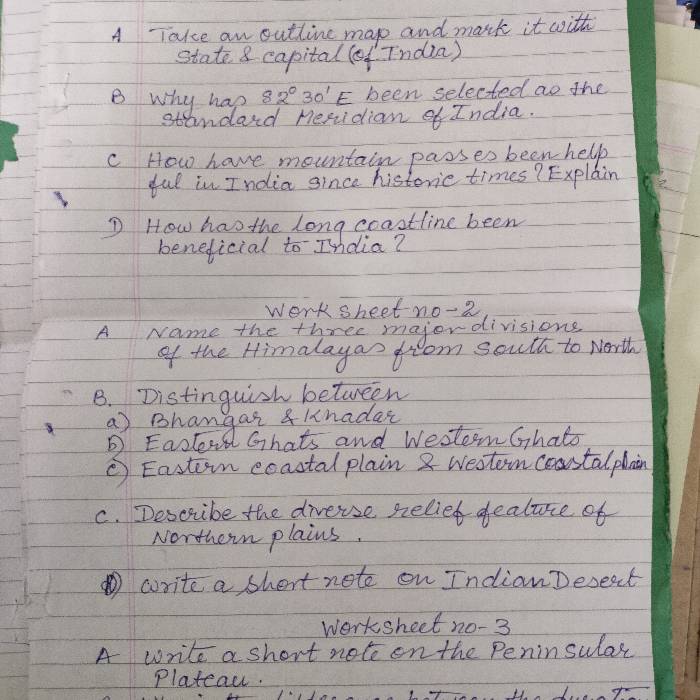 A Take an outline map and mark it with
State & capital (of India)
B Why has 82° 30' E been selected as the
Standard Meridian of India.
C How have mountain passes been help
ful in India since historic times? Explain
D How has the long coastline been
beneficial to India?
Work sheet no-2
A Name the three major divisions
of the Himalayas from south to North
B. Distinguish between
a) Bhangar & Khadar
b) Eastern Ghats and Western Ghats
c) Eastern coastal plain & Western coastal plain
C. Describe the diverse relief feature of
Northern plains.
D) write a short note on Indian Desert
Worksheet no-3
A write a short note on the Peninsular
Plateau.